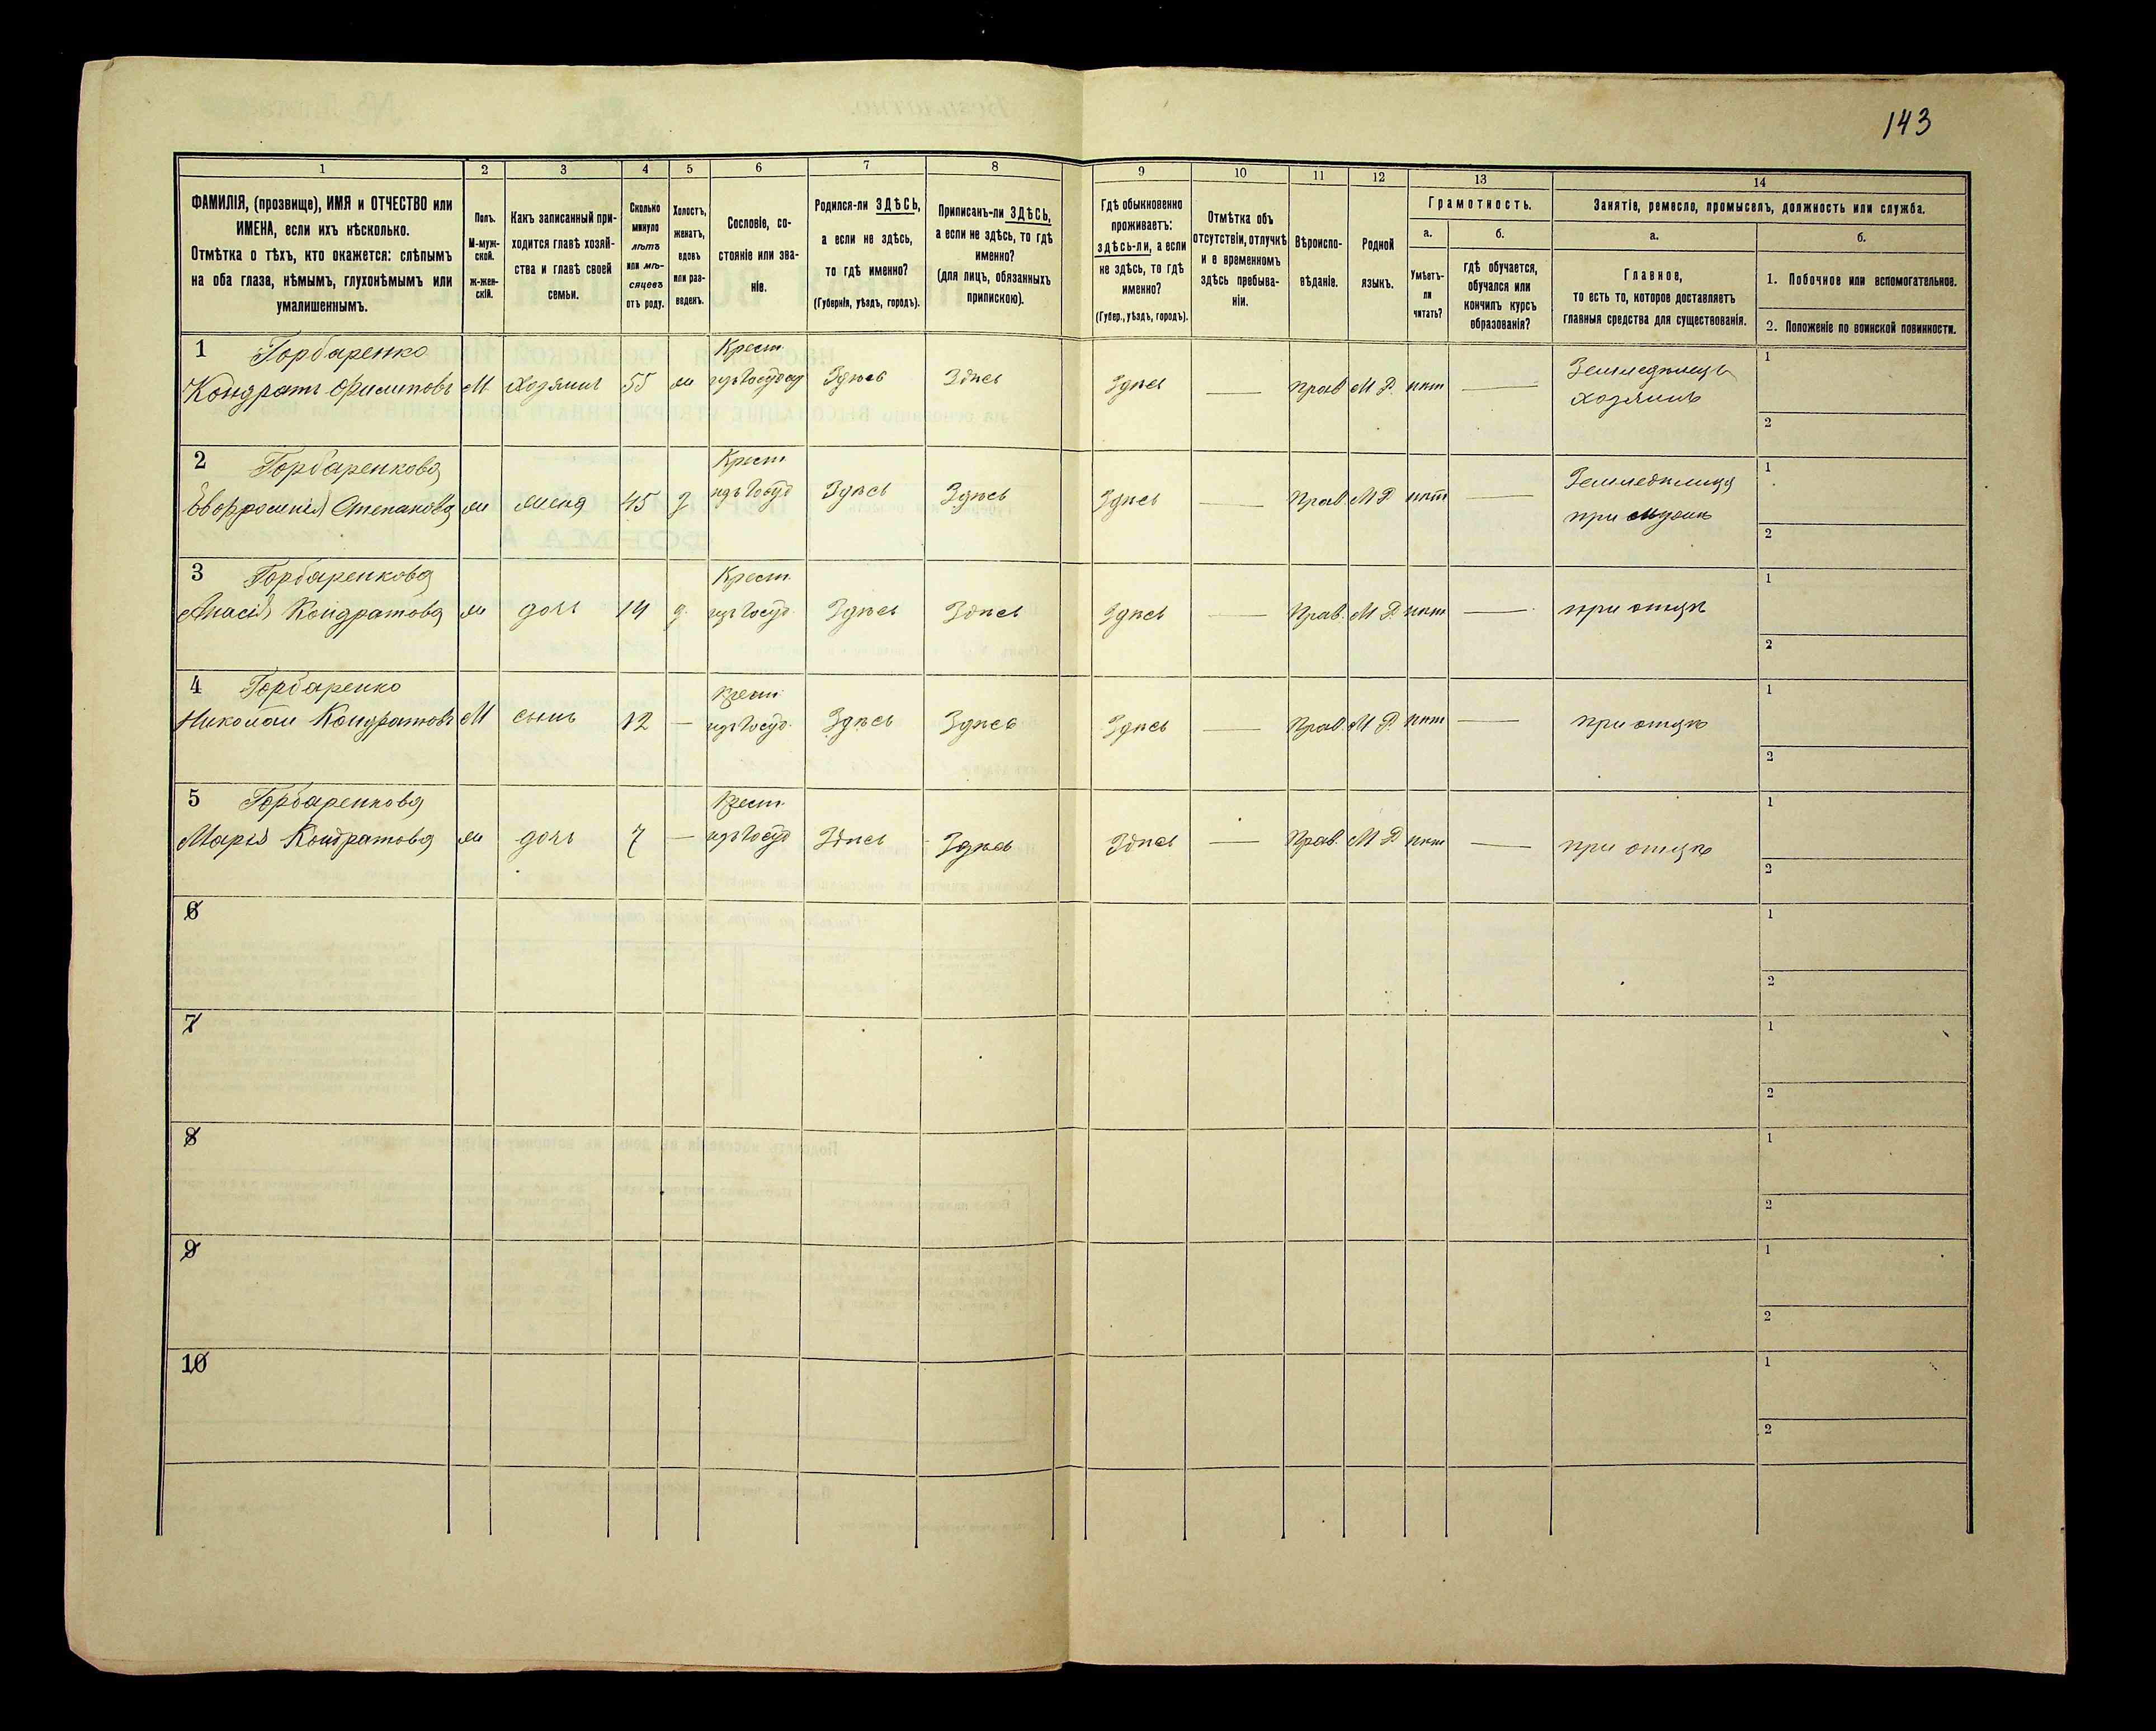 143
1 2 3 4 5 6 7 8 9 10 11 12 13 14
ФАМИЛІЯ, (прозвище), ИМЯ и ОТЧЕСТВО или
ИМЕНА, если ихъ нѣсколько.
Отмѣтка о тѣхъ, кто окажется: слѣпымъ
на оба глаза, нѣмымъ, глухонѣмымъ или
умалишеннымъ.
Полъ.
М-муж-
ской.
ж-жен-
скій.
Какъ записанный при-
ходится главѣ хозяй-
ства и главѣ своей
семьи.
Сколько
минуло
лѣтъ
или мѣ-
сяцевъ
отъ роду.
Холостъ,
женатъ,
вдовъ
или раз-
веденъ.
Сословіе, со-
стояніе или зва-
ніе.
Родился-ли ЗДѢСЬ,
а если не здѣсь,
то гдѣ именно?
(Губернія, уѣздъ, городъ).
Приписанъ-ли ЗДѢСЬ,
а если не здѣсь, то гдѣ
именно?
(для лицъ, обязанныхъ
припискою).
Гдѣ обыкновенно
проживаетъ:
здѣсь-ли, а если
не здѣсь, то гдѣ
именно?
(Губер., уѣздъ, городъ).
Отмѣтка объ
отсутствіи, отлучкѣ
и о временномъ
здѣсь пребыва-
ніи.
Вѣроиспо-
вѣданіе.
Родной
языкъ.
Грамотность.
а.
Умѣетъ-
ли
читать?
б.
гдѣ обучается,
обучался или
кончилъ курсъ
образованія?
Занятіе, ремесло, промыселъ, должность или служба.
а.
Главное,
то есть то, которое доставляетъ
главныя средства для существованія.
б.
1. Побочное или вспомогательное.
2. Положеніе по воинской повинности.
1 Горбаренко Крест. Земледѣлецъ 1
Кондратъ Филиповъ М Хозяинъ 55 ж изъ Государ Здѣсь Здѣсь Здѣсь — Прав М Р. нѣт — хозяинъ
2
2 Горбаренкова Крест. Земледѣлица 1
Евфросинія Степанова ж жена 45 з изъ Госуд Здѣсь Здѣсь Здѣсь — Прав. М Р. нѣт — при мужѣ
2
3 Горбаренкова Крест. 1
Кондратова ж дочь 19 д. изъ Госуд. Здѣсь Здѣсь Здѣсь — Прав. М Р. нѣт — при отцѣ
2
4 Горбаренко Крест. 1
Николай Кондратовъ М сынъ 12 — изъ Госуд. Здѣсь Здѣсь Здѣсь — Прав. М Р. нѣт — при отцѣ
2
5 Горбаренкова Крест. 1
Марія Кондратова ж дочь 7 — изъ Госуд Здѣсь Здѣсь Здѣсь — Прав. М Р нѣт — при отцѣ
2
6 1
2
7 1
2
8 1
2
9 1
2
10 1
2